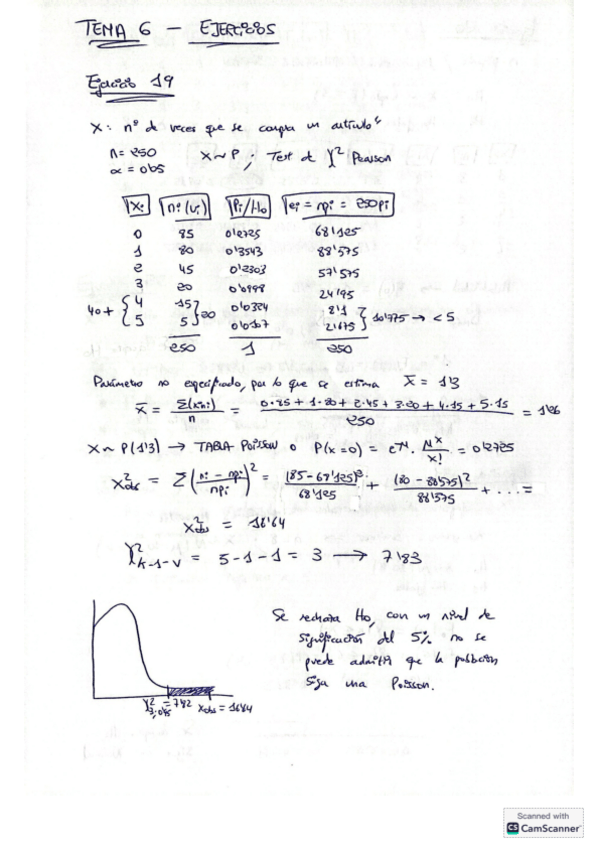 TEMA 6 – EJERCICIOS
Ejercicio 19
X: nº de veces que se compra un artículo
n = 250 X ~ P, Test de χ² Pearson
α = 0'05
Xi ni (vi) Pi/Ho ei = npi = 250pi
0 85 0'2725 68'125
1 80 0'3543 88'575
2 45 0'2303 57'575
3 20 0'0998 24'95
40+ { 4 15 } 20 0'0324 8'1 } 10'775 → < 5
5 5 0'0107 2'675
250 1 250
Parámetro no especificado, por lo que se estima X̄ = 1'3
X̄ = Σ(xi·ni)/n = (0·85 + 1·80 + 2·45 + 3·20 + 4·15 + 5·15)/250 = 1'26
X ~ P(1'3) → TABLA POISSON o P(x=0) = e^-λ · λ^x/x! = 0'2725
X²obs = Σ(ni - npi/npi)² = (85 - 67'125)²/68'125 + (80 - 88'575)²/88'575 + ... =
X²obs = 16'64
χ²k-1-v = 5 - 1 - 1 = 3 → 7'83
Se rechaza Ho, con un nivel de
significación del 5% no se
puede admitir que la población
siga una Poisson.
χ²3;0'05 = 7'82 Xobs = 16'64
Scanned with
CS CamScanner